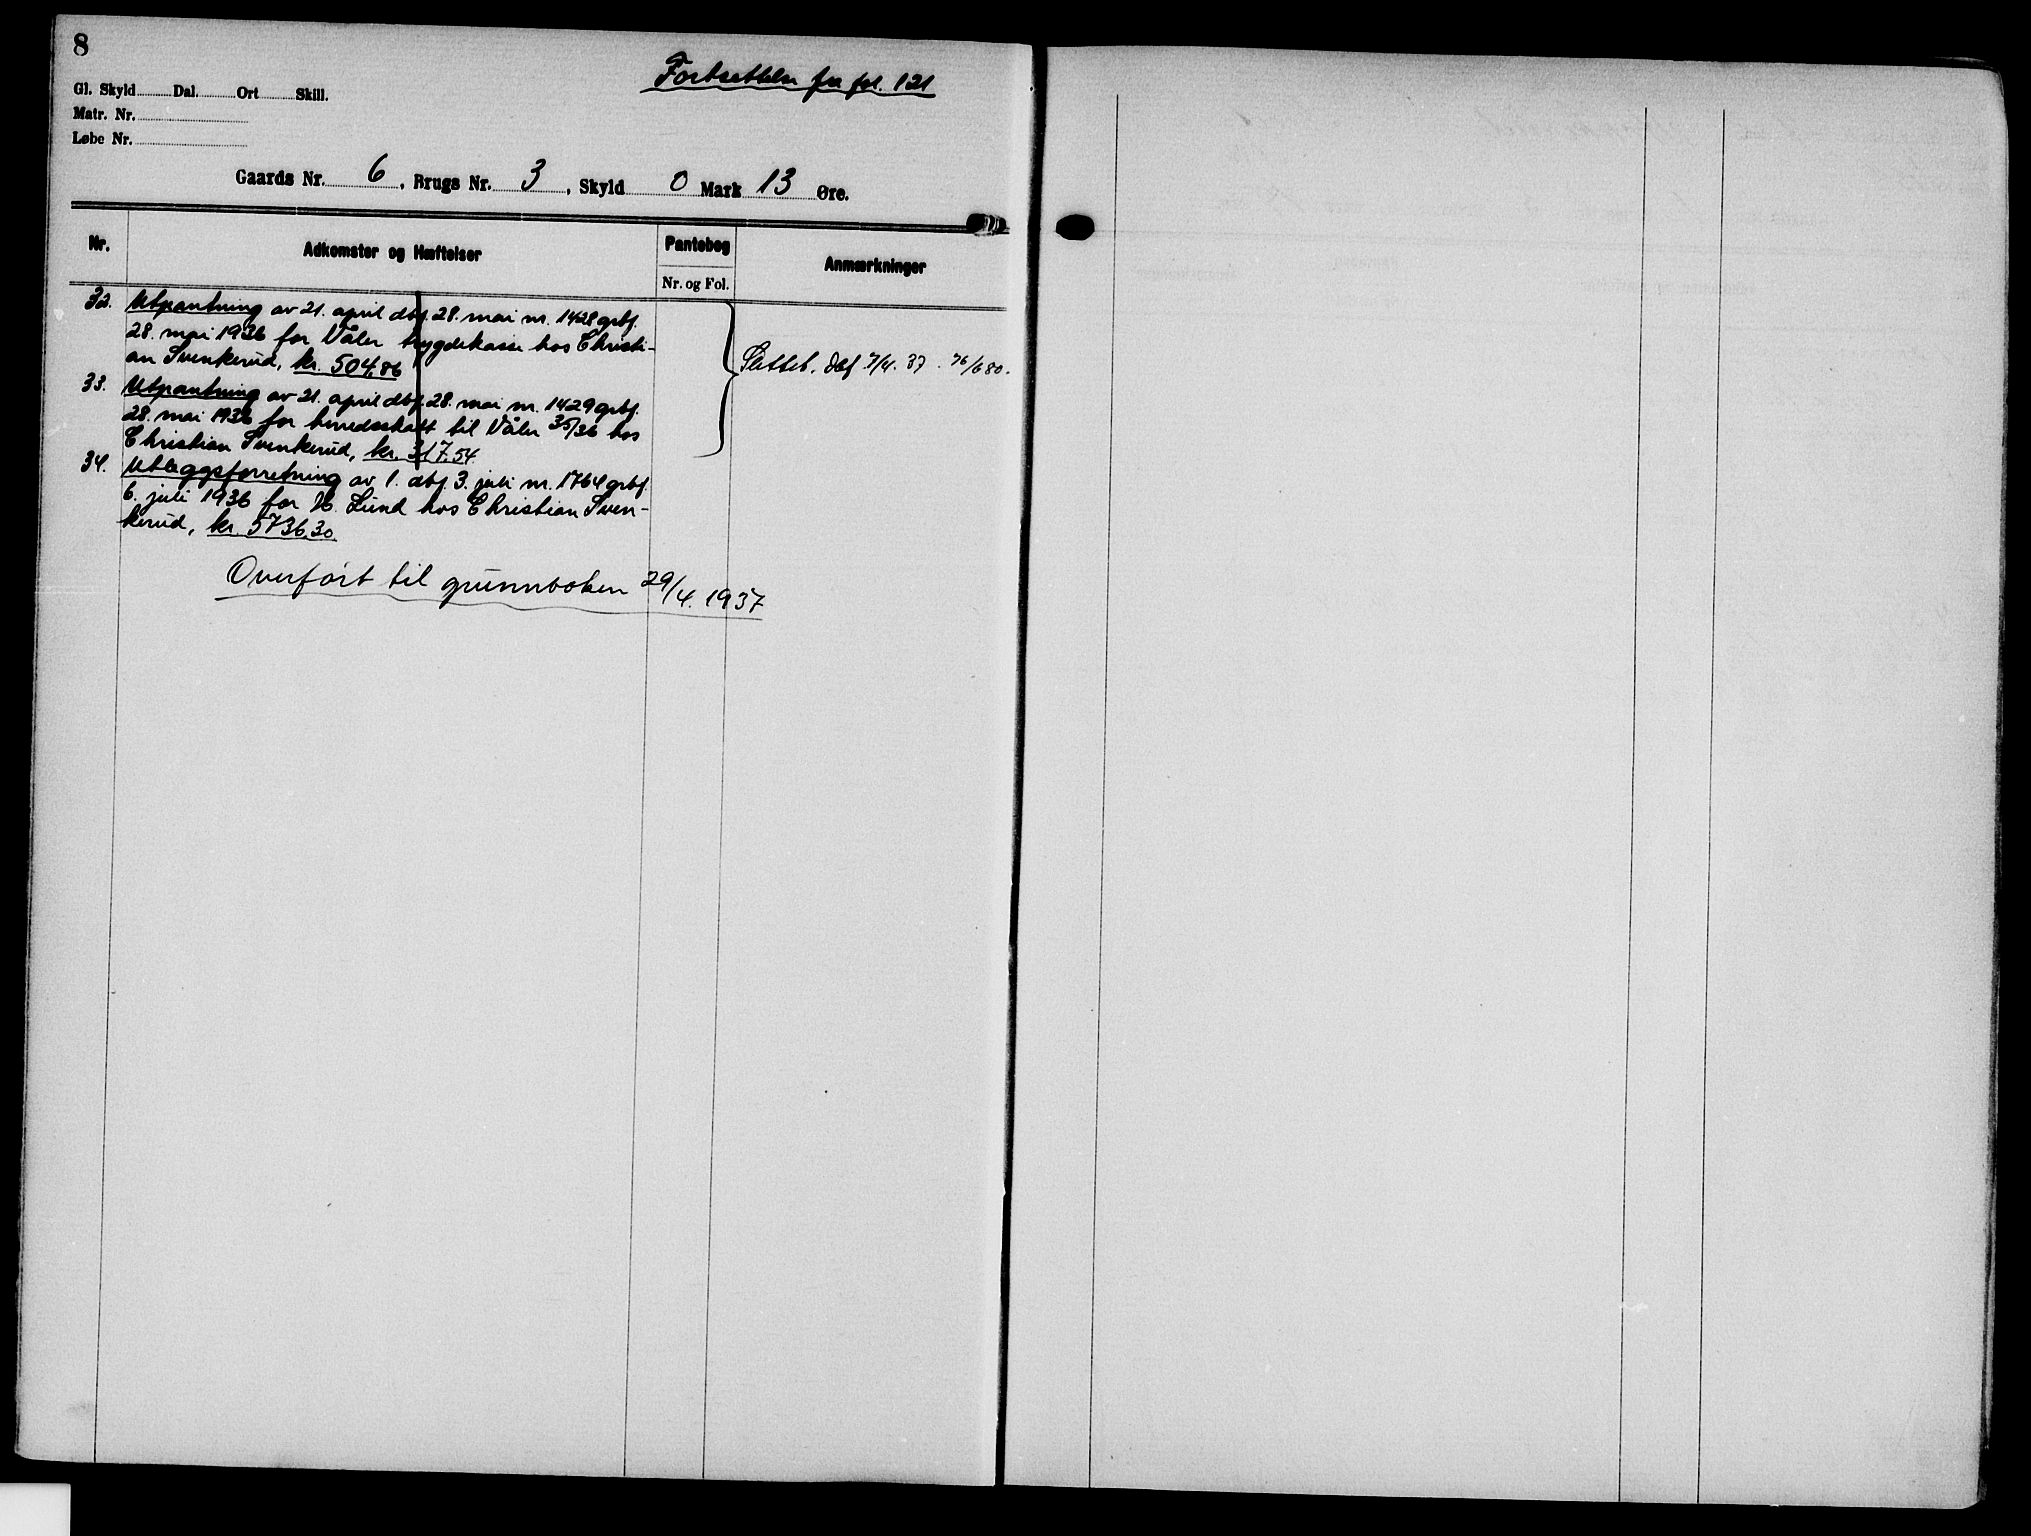 8
Fortsettelse fra fol. 121
Gl. Skyld Dal. Ort Skill.
Matr. Nr.
Løbe Nr.
Gaards Nr. 6, Brugs Nr. 3, Skyld 0 Mark 13 Øre.
Nr. Adkomster og Hæftelser Pantebog Anmærkninger
Nr. og Fol.
32. Utpantning av 21. april dbf. 28. mai nr. 1428 grbf.
28. mai 1936 for Våler trygdekasse hos Christi-
an Svenkerud, kr. 504,86
Slettet. dbf 7/4. 37. 76/680.
33. Utpantning av 21. april dbf. 28. mai nr. 1429 grbf.
28. mai 1936 for herredsskatt til Våler 35/36 hos
Christian Svenkerud, kr. 317.54.
34. Utleggsforretning av 1. dbf. 3. juli nr. 1764 grbf.
6. juli 1936 for H. Lund hos Christian Sven-
kerud, kr. 5736.30.
Overført til grunnboken 29/4. 1937